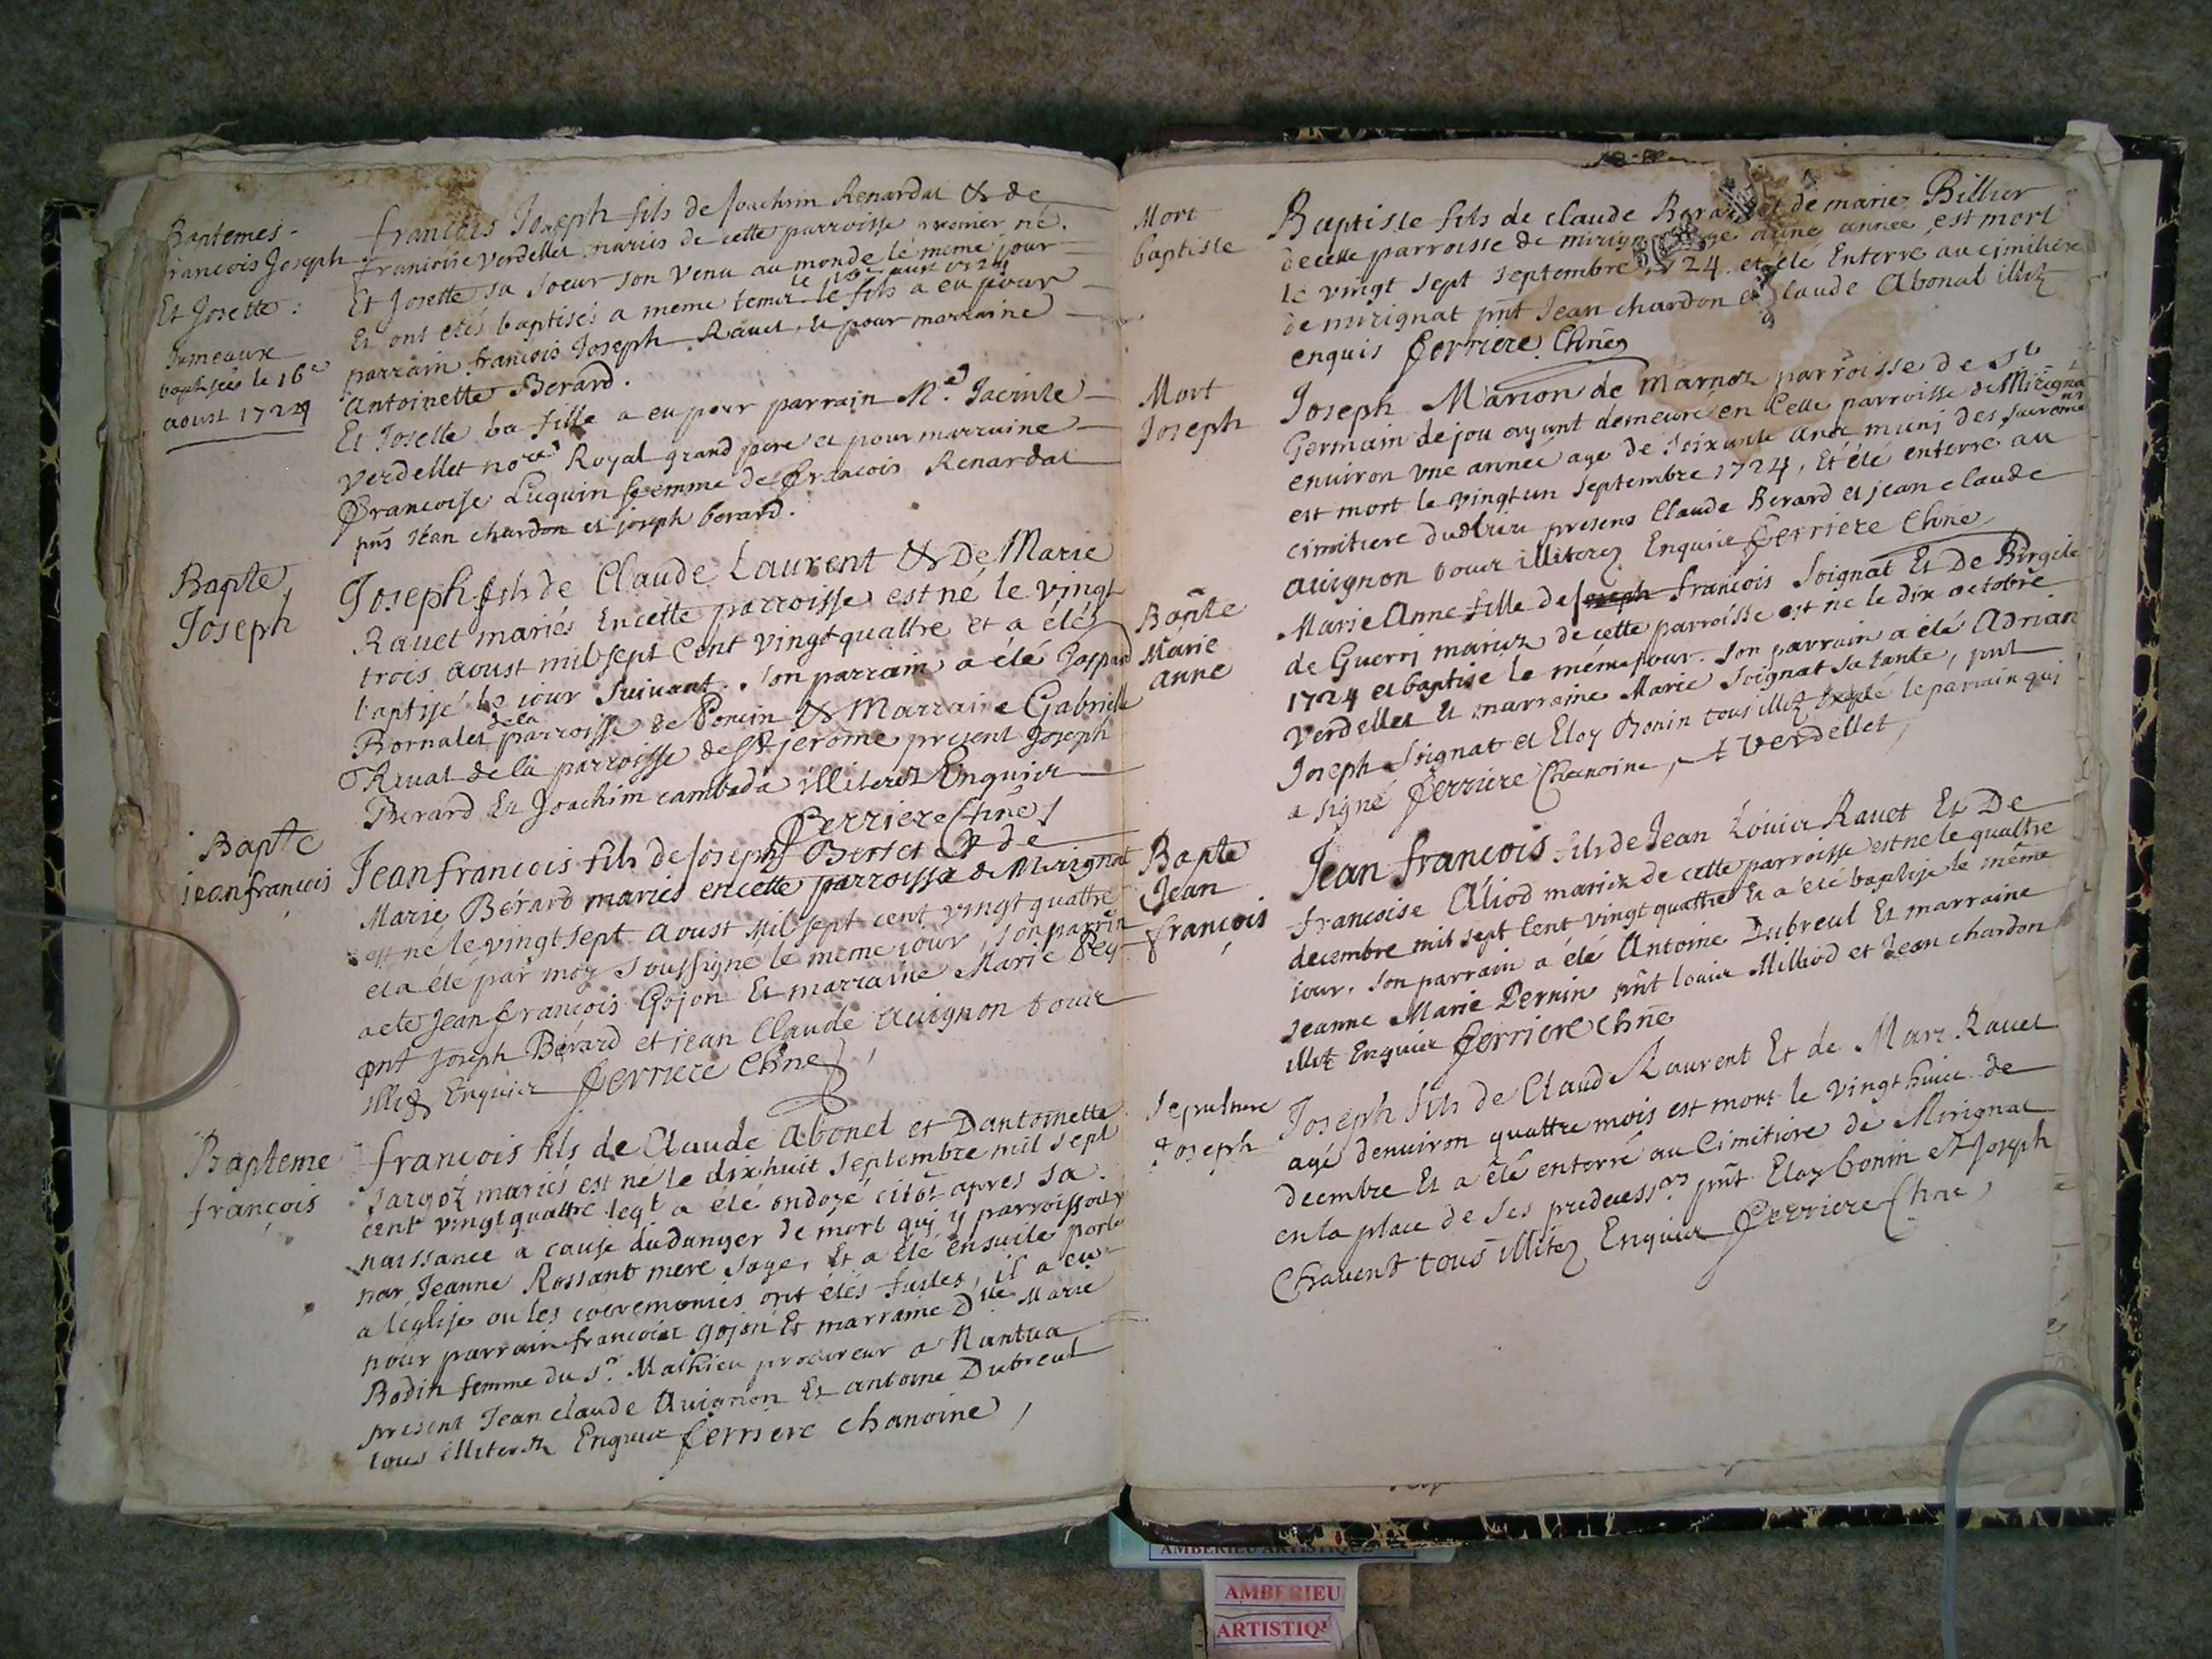 Baptemes.
francois Joseph
Et Josette :
Jumeaux
baptisés le 16e
aoust 1724
francois Joseph fils de Joachim Renardat & de
francoise Verdellet mariés de cette parroisse premier né.
Et Josette sa soeur son venu au monde le meme jour
Et ont etés baptisés a meme tems le 16e aust 1724 le fils a eu pour
parrain francois Joseph Rauet, et pour marraine
Antoinette Berard.
Et Josette la fille a eu pour parrain Me. Jacinte
Verdellet nore Royal grand pere et pour marraine
Francoise Luquin femme de Francois Renardat
pnts Jean chardon et joseph berard.
Bapte
Joseph
Joseph fils de Claude Laurent & De Marie
Rauet mariés En cette parroisse est né le vingt
trois aoust mil sept Cent vingt quattre et a étés
baptisé le jour Suivant. Son parrain a été Gaspard
Bornalet de la parroisse de Poncin & Marraine Gabrielle
Riuat de la parroisse de St jerome present Joseph
Berard Et Joachim cambada illiterez Enquis
Ferriere Chne
Bapte
jean francois
Jean francois fils de Joseph Bertet & de
Marie Bérard mariés en cette parroisse de Mirignat
est né le vingt sept aoust Mil sept cent vingt quattre
et a été par moy soussigne le meme jour, son parrin
a ete Jean francois Gojon Et marraine Marie Pey
pnt Joseph Bérard et jean Claude Avignon tous
illitz Enquis Ferriere Chne
Bapteme
françois
francois fils de Claude Abonel et Dantoinette
Jargoz mariés est né le dixhuit Septembre mil sept
cent vingt quattre leqt a été ondoyé citôt apres sa
naissance a cause du danger de mort qui y parroissoit
par Jeanne Rossant mere sage, Et a été ensuite porté
a léglise ou les coeremonies ont étés faites, il a eu
pour parrain francois gojon Et marraine Dlle Marie
Bodin femme du Sr. Mathieu procureur a Nantua
present Jean claude Avignon Et antoine Dubreul
tous illiterez Enquis ferriere chanoine
Mort
baptiste
Baptiste fils de claude Berard et de marie Billier
de cette parroisse de mirignat age dune année est mort
le vingt sept septembre 1724 et été Enterre au cimitiere
de mirignat pnt Jean chardon et Claude Abonal illitz
enquis ferriere Chne
Mort
Joseph
Joseph Marion de Marnoz parroisse de St
Germain de jou ayant demeuré en Cette parroisse de Mirigna
environ une année age de soixante ans muni des sacremens
est mort le vingt un septembre 1724, Et été enterre au
cimitiere dudlieu presens Claude Berard et jean claude
avignon tous illiterez Enquis ferriere Chne
Bapte
Marie
anne
Marie Anne fille de Joseph francois Soignat Et De Birgite
de Guerrj mariez de cette parroisse est ne le dix octobre
1724 et baptise le meme jour. son parrain a été Adrian
Verdellet et marraine Marie Soignat sa tante, pnt
Joseph Soignat et Eloy Bonin tous illitz excepté le parrain qui
a signé ferriere Chanoine, A Verdellet
Bapte
Jean
françois
Jean francois fils de Jean Louis Rauet Et De
francoise Aliod mariez de cette parroisse est ne le quattre
decembre mil sept Cent vingt quattre Et a été baptise le même
iour. Son parrain a été Antoine Dubreul Et marraine
Jeanne Marie Pernin pnt louis Milliod et Jean chardon
illitz Enquis ferriere Chne
Sepulture
Joseph
Joseph fils de Claude Laurent Et de Marie Rauet
agé denuiron quattre mois est mort le vingt huict de
decembre Et a été enterré au Cimitiere de Mirignat
en la place de ses predecessrs pnt Eloy bonin et Joseph
Chauent tous illitez Enquis ferriere Chne
AMBERIEU ARTISTIQUE
AMBERIEU
ARTISTIQU